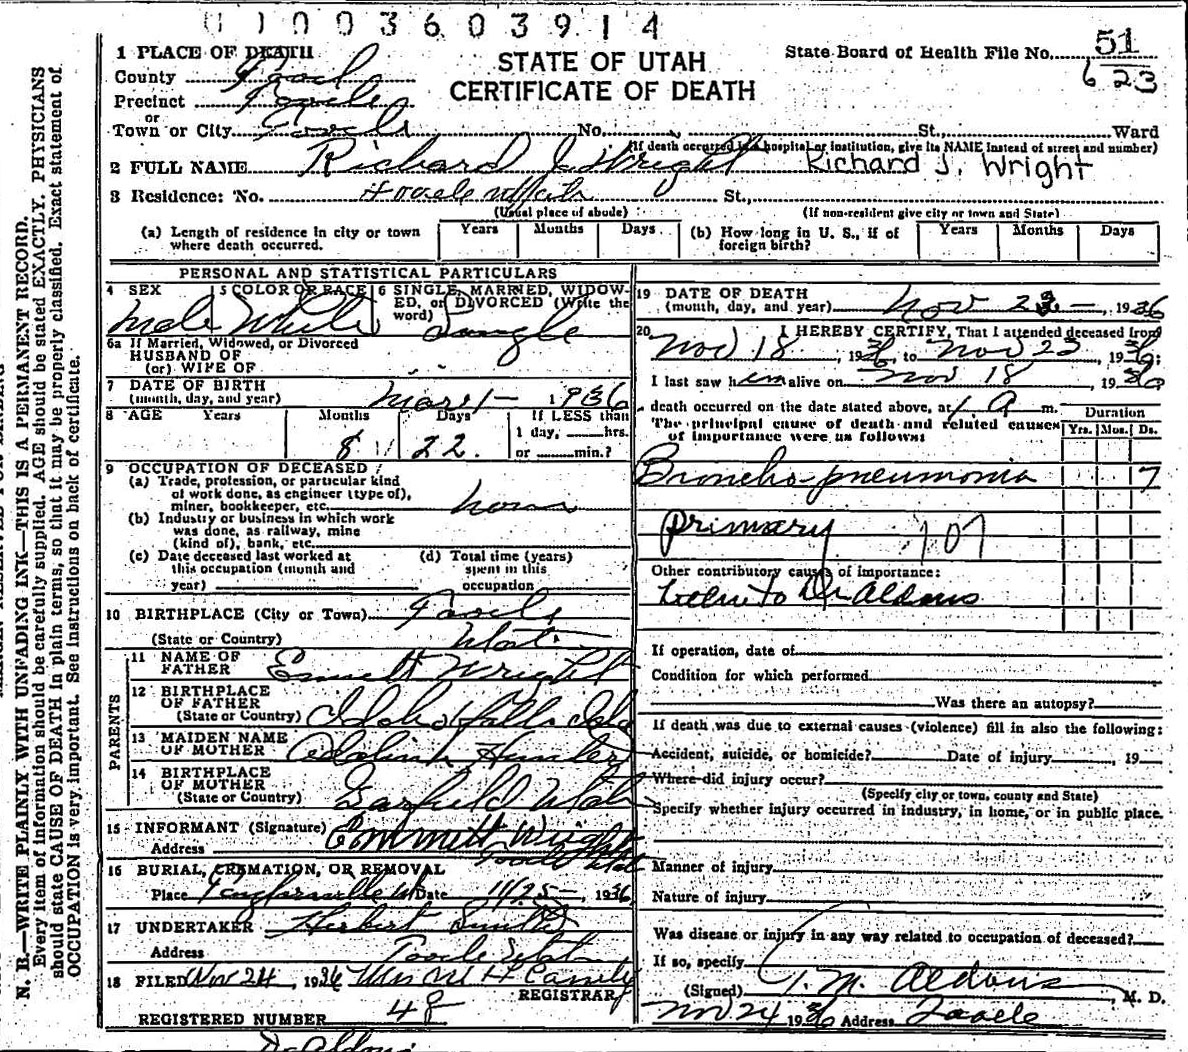 0 1 0 0 3 6 0 3 9 1 4
1 PLACE OF DEATH
STATE OF UTAH
CERTIFICATE OF DEATH
State Board of Health File No. 51
623
County Tooele
Precinct Tooele
or
Town or City Tooele No. St., Ward
(If death occurred in a hospital or institution, give its NAME instead of street and number)
2 FULL NAME Richard J. Wright Richard J. Wright
3 Residence: No. Tooele Utah St.,
(Usual place of abode) (If non-resident give city or town and State)
(a) Length of residence in city or town where death occurred. Years Months Days (b) How long in U. S., if of foreign birth? Years Months Days
PERSONAL AND STATISTICAL PARTICULARS
4 SEX 5 COLOR OR RACE 6 SINGLE, MARRIED, WIDOW-
ED, or DIVORCED (Write the
word)
Male White Single
6a If Married, Widowed, or Divorced
HUSBAND OF
(or) WIFE OF
7 DATE OF BIRTH
(month, day, and year) Mar 1 - 1936
8 AGE Years Months Days If LESS than
1 day, hrs.
or min.?
8 22
9 OCCUPATION OF DECEASED
(a) Trade, profession, or particular kind
of work done, as engineer (type of),
miner, bookkeeper, etc.
(b) Industry or business in which work
was done, as railway, mine
(kind of), bank, etc.
(c) Date deceased last worked at
this occupation (month and
year)
(d) Total time (years)
spent in this
occupation
10 BIRTHPLACE (City or Town) Tooele
(State or Country) Utah
PARENTS
11 NAME OF
FATHER Emmett Wright
12 BIRTHPLACE
OF FATHER
(State or Country) Idaho Falls Ida
13 MAIDEN NAME
OF MOTHER Hunter
14 BIRTHPLACE
OF MOTHER
(State or Country) Garfield Utah
15 INFORMANT (Signature) Emmett Wright
Address Tooele Utah
16 BURIAL, CREMATION, OR REMOVAL
Place Taylorsville Ut Date 11/25 - 1936
17 UNDERTAKER Herbert
Address Tooele Utah
18 FILED Nov 24, 1936 Mrs M H
REGISTRAR
REGISTERED NUMBER 48
19 DATE OF DEATH
(month, day, and year) Nov 23 - 1936
20 I HEREBY CERTIFY, That I attended deceased from
Nov 18, 1936, to Nov 23, 1936;
I last saw him alive on Nov 18, 1936
death occurred on the date stated above, at 1 A m.
The principal cause of death and related causes
of importance were as follows:
Duration
Yrs. Mos. Ds.
Broncho-pneumonia 7
primary 107
Other contributory causes of importance:
Dr Aldous
If operation, date of
Condition for which performed
Was there an autopsy?
If death was due to external causes (violence) fill in also the following:
Accident, suicide, or homicide? Date of injury , 19
Where did injury occur?
(Specify city or town, county and State)
Specify whether injury occurred in industry, in home, or in public place.
Manner of injury
Nature of injury
Was disease or injury in any way related to occupation of deceased?
If so, specify
(Signed) T. M. Aldous, M. D.
Nov 24 1936 Address Tooele
Dr Aldous
N. B.—WRITE PLAINLY WITH UNFADING INK—THIS IS A PERMANENT RECORD.
Every item of information should be carefully supplied. AGE should be stated EXACTLY. PHYSICIANS
should state CAUSE OF DEATH in plain terms, so that it may be properly classified. Exact statement of
OCCUPATION is very important. See instructions on back of certificate.